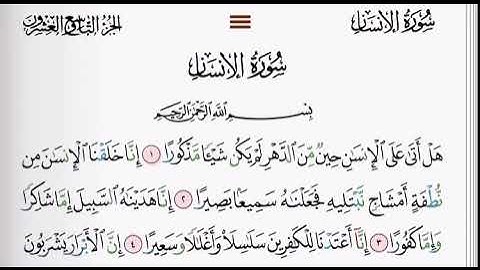 سُورَةُ الإِنسَانِ
الجُزْءُ التَّاسِعُ وَالعِشْرُونَ
سُورَةُ الإِنسَانِ
بِسْمِ ٱللَّهِ ٱلرَّحْمَٰنِ ٱلرَّحِيمِ
هَلْ أَتَىٰ عَلَى ٱلْإِنسَٰنِ حِينٌ مِّنَ ٱلدَّهْرِ لَمْ يَكُن شَيْـًٔا مَّذْكُورًا ١ إِنَّا خَلَقْنَا ٱلْإِنسَٰنَ مِن
نُّطْفَةٍ أَمْشَاجٍ نَّبْتَلِيهِ فَجَعَلْنَٰهُ سَمِيعًۢا بَصِيرًا ٢ إِنَّا هَدَيْنَٰهُ ٱلسَّبِيلَ إِمَّا شَاكِرًا
وَإِمَّا كَفُورًا ٣ إِنَّآ أَعْتَدْنَا لِلْكَٰفِرِينَ سَلَٰسِلَا۟ وَأَغْلَٰلًا وَسَعِيرًا ٤ إِنَّ ٱلْأَبْرَارَ يَشْرَبُونَ